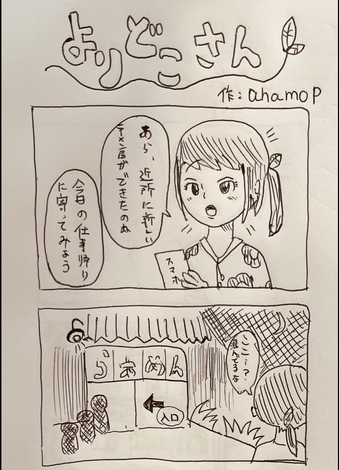 よりどこさん
作：ahamoP
あら、近所に新しい
ラーメン屋ができたのね
今日の仕事帰り
に寄ってみよう
スマホ
ここ…？
らぁめん
入口